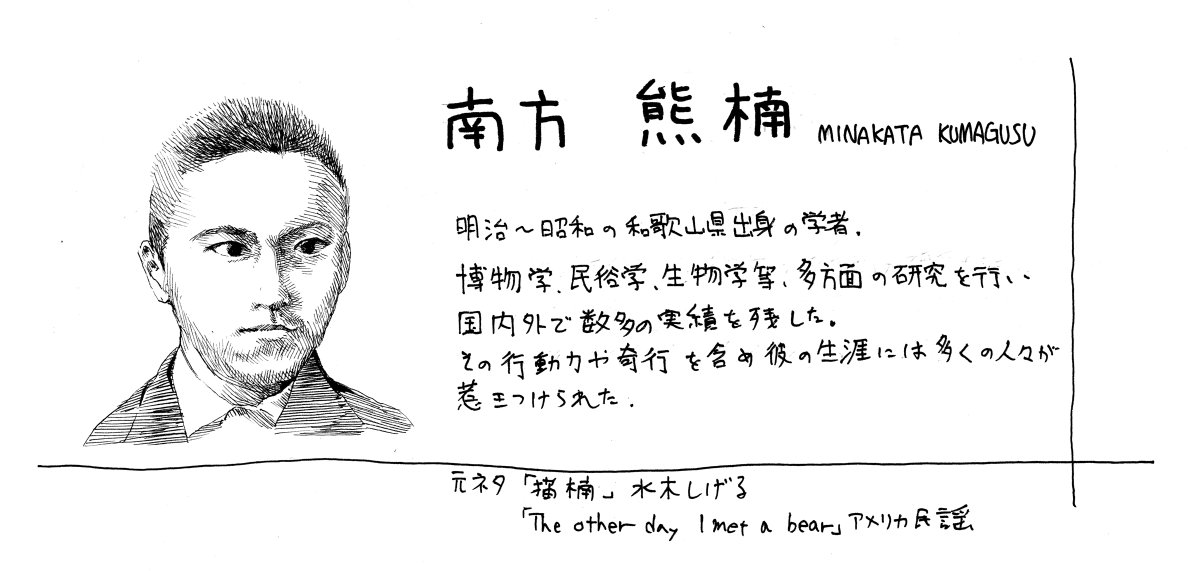 南方 熊楠 MINAKATA KUMAGUSU
明治～昭和の和歌山県出身の学者.
博物学、民俗学、生物学等、多方面の研究を行い、
国内外で数多の実績を残した。
その行動力や奇行を含め彼の生涯には多くの人々が
惹きつけられた.
元ネタ「猫楠」水木しげる
「The other day I met a bear」アメリカ民謡